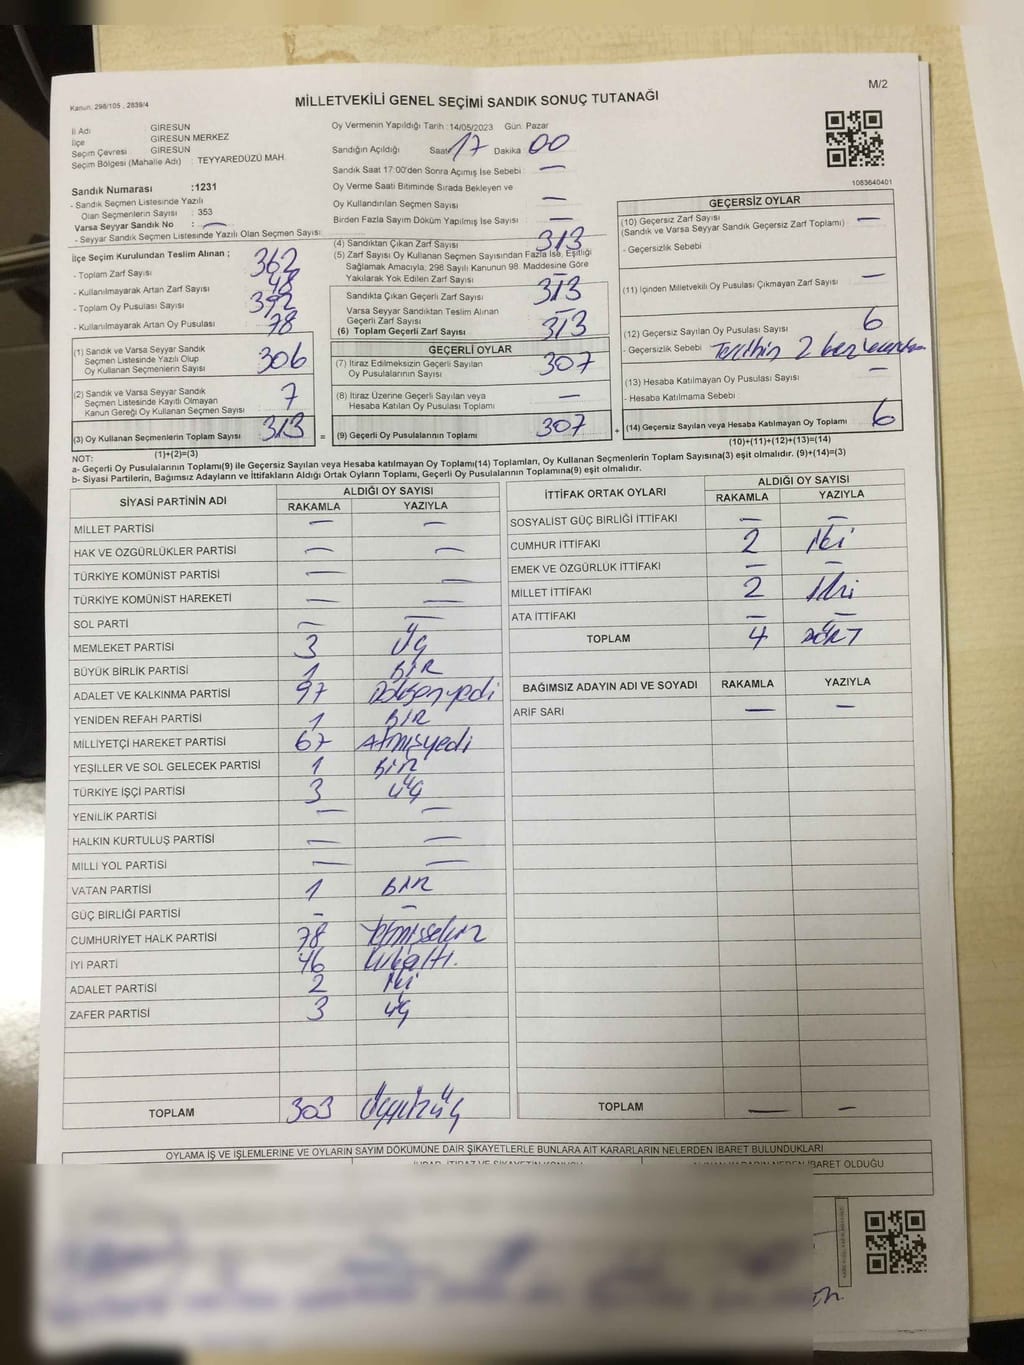 Kanun: 298/105 , 2839/4
M/2
MİLLETVEKİLİ GENEL SEÇİMİ SANDIK SONUÇ TUTANAĞI
İl Adı GİRESUN
İlçe GİRESUN MERKEZ
Seçim Çevresi GİRESUN
Seçim Bölgesi (Mahalle Adı) : TEYYAREDÜZÜ MAH.
Sandık Numarası :1231
- Sandık Seçmen Listesinde Yazılı
Olan Seçmenlerin Sayısı : 353
Varsa Seyyar Sandık No : —
- Seyyar Sandık Seçmen Listesinde Yazılı Olan Seçmen Sayısı:
Oy Vermenin Yapıldığı Tarih :14/05/2023 Gün: Pazar
Sandığın Açıldığı Saat 17 Dakika 00
Sandık Saat 17:00'den Sonra Açımış İse Sebebi : —
Oy Verme Saati Bitiminde Sırada Bekleyen ve
Oy Kullandırılan Seçmen Sayısı —
Birden Fazla Sayım Döküm Yapılmış İse Sayısı : —
1083640401
İlçe Seçim Kurulundan Teslim Alınan ;
- Toplam Zarf Sayısı 362
- Kullanılmayarak Artan Zarf Sayısı 48
- Toplam Oy Pusulası Sayısı 392
- Kullanılmayarak Artan Oy Pusulası 78
(1) Sandık ve Varsa Seyyar Sandık
Seçmen Listesinde Yazılı Olup
Oy Kullanan Seçmenlerin Sayısı 306
(2) Sandık ve Varsa Seyyar Sandık
Seçmen Listesinde Kayıtlı Olmayan
Kanun Gereği Oy Kullanan Seçmen Sayısı 7
(3) Oy Kullanan Seçmenlerin Toplam Sayısı 313 =
(1)+(2)=(3)
(4) Sandıktan Çıkan Zarf Sayısı 313
(5) Zarf Sayısı Oy Kullanan Seçmen Sayısından Fazla İse, Eşitliği
Sağlamak Amacıyla, 298 Sayılı Kanunun 98. Maddesine Göre
Yakılarak Yok Edilen Zarf Sayısı —
Sandıkta Çıkan Geçerli Zarf Sayısı 313
Varsa Seyyar Sandıktan Teslim Alınan
Geçerli Zarf Sayısı —
(6) Toplam Geçerli Zarf Sayısı 313
GEÇERLİ OYLAR
(7) İtiraz Edilmeksizin Geçerli Sayılan
Oy Pusulalarının Sayısı 307
(8) İtiraz Üzerine Geçerli Sayılan veya
Hesaba Katılan Oy Pusulası Toplamı —
(9) Geçerli Oy Pusulalarının Toplamı 307 +
GEÇERSİZ OYLAR
(10) Geçersiz Zarf Sayısı —
(Sandık ve Varsa Seyyar Sandık Geçersiz Zarf Toplamı)
- Geçersizlik Sebebi
(11) İçinden Milletvekili Oy Pusulası Çıkmayan Zarf Sayısı —
(12) Geçersiz Sayılan Oy Pusulası Sayısı 6
- Geçersizlik Sebebi 2
(13) Hesaba Katılmayan Oy Pusulası Sayısı —
- Hesaba Katılmama Sebebi :
(14) Geçersiz Sayılan veya Hesaba Katılmayan Oy Toplamı 6
(10)+(11)+(12)+(13)=(14)
NOT:
a- Geçerli Oy Pusulalarının Toplamı(9) ile Geçersiz Sayılan veya Hesaba katılmayan Oy Toplamı(14) Toplamları, Oy Kullanan Seçmenlerin Toplam Sayısına(3) eşit olmalıdır. (9)+(14)=(3)
b- Siyasi Partilerin, Bağımsız Adayların ve İttifakların Aldığı Ortak Oyların Toplamı, Geçerli Oy Pusulalarının Toplamına(9) eşit olmalıdır.
SİYASİ PARTİNİN ADI ALDIĞI OY SAYISI
RAKAMLA YAZIYLA
MİLLET PARTİSİ — —
HAK VE ÖZGÜRLÜKLER PARTİSİ — —
TÜRKİYE KOMÜNİST PARTİSİ — —
TÜRKİYE KOMÜNİST HAREKETİ — —
SOL PARTİ — —
MEMLEKET PARTİSİ 3 üç
BÜYÜK BİRLİK PARTİSİ 1 BİR
ADALET VE KALKINMA PARTİSİ 97 Doksanyedi
YENİDEN REFAH PARTİSİ 1 BİR
MİLLİYETÇİ HAREKET PARTİSİ 67 Atmışyedi
YEŞİLLER VE SOL GELECEK PARTİSİ 1 BİR
TÜRKİYE İŞÇİ PARTİSİ 3 üç
YENİLİK PARTİSİ — —
HALKIN KURTULUŞ PARTİSİ — —
MİLLİ YOL PARTİSİ — —
VATAN PARTİSİ 1 BİR
GÜÇ BİRLİĞİ PARTİSİ — —
CUMHURİYET HALK PARTİSİ 78
İYİ PARTİ 46 kırkaltı.
ADALET PARTİSİ 2 iki
ZAFER PARTİSİ 3 üç
TOPLAM 303 üçyüzüç
İTTİFAK ORTAK OYLARI ALDIĞI OY SAYISI
RAKAMLA YAZIYLA
SOSYALİST GÜÇ BİRLİĞİ İTTİFAKI — —
CUMHUR İTTİFAKI 2 iki
EMEK VE ÖZGÜRLÜK İTTİFAKI — —
MİLLET İTTİFAKI 2 iki
ATA İTTİFAKI — —
TOPLAM 4 DÖRT
BAĞIMSIZ ADAYIN ADI VE SOYADI RAKAMLA YAZIYLA
ARİF SARI — —
TOPLAM — —
OYLAMA İŞ VE İŞLEMLERİNE VE OYLARIN SAYIM DÖKÜMÜNE DAİR ŞİKAYETLERLE BUNLARA AİT KARARLARIN NELERDEN İBARET BULUNDUKLARI
İBARET OLDUĞU